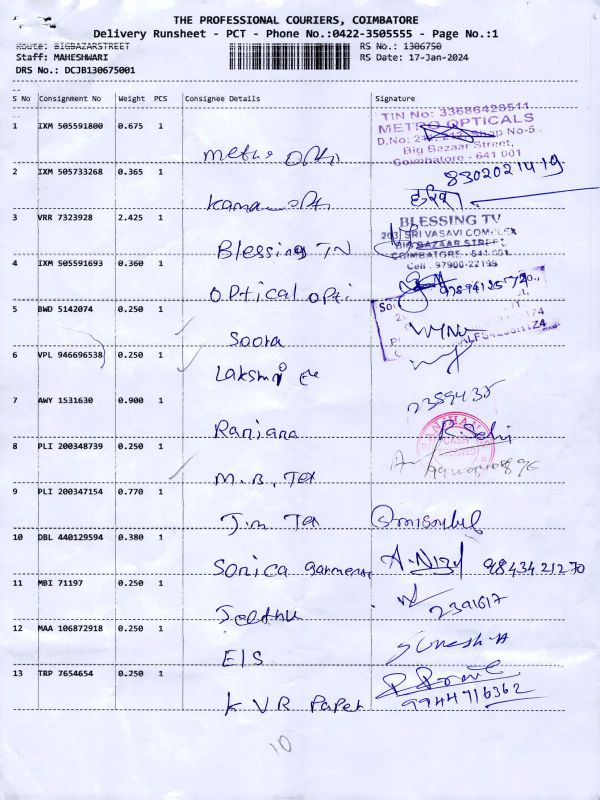 THE PROFESSIONAL COURIERS, COIMBATORE
Delivery Runsheet - PCT - Phone No.:0422-3505555 - Page No.:1
Route: BIGBAZARSTREET RS No.: 1306750
Staff: MAHESHWARI RS Date: 17-Jan-2024
DRS No.: DCJB130675001
S No Consignment No Weight PCS Consignee Details Signature
TIN No: 33686428511
1 IXM 505591800 0.675 1 METRO OPTICALS
D.No: Shop No-5
Big Bazaar Street,
Metro Opti Coimbatore - 641 001
2 IXM 505733268 0.365 1 8302021419
Kaman opti
3 VRR 7323928 2.425 1 BLESSING TV
203, SRI VASAVI COMPLEX
BIG BAZAAR STREET
Blessing TN COIMBATORE - 641 001
Cell : 97900-22199
4 IXM 505591693 0.360 1
optical opti
5 BWD 5142074 0.250 1
Soora
6 VPL 946696538 0.250 1
Lakshmi
7 AWY 1531630 0.900 1 2359435
Ranjana R. Selvi
8 PLI 200348739 0.250 1
M.B. Tex
9 PLI 200347154 0.770 1
J.m Tex
10 DBL 440129594 0.380 1
Sonica garments A. Nizy 9843421270
11 MBI 71197 0.250 1 2391617
Jeethu
12 MAA 106872918 0.250 1 Suresh
EIS
13 TRP 7654654 0.250 1
K V R Paper 9944716362
10